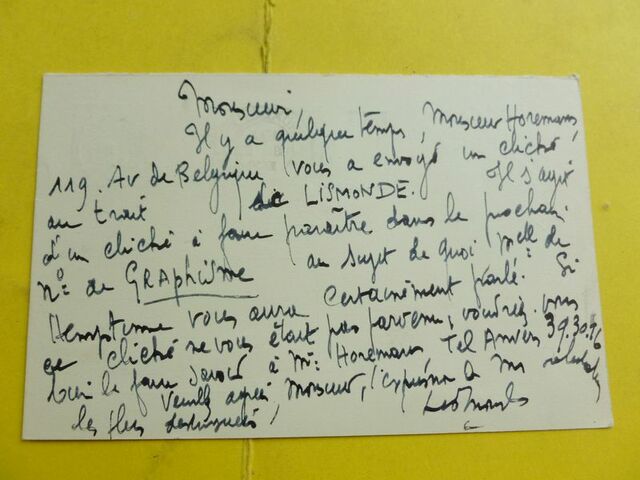 Monsieur,
Il y a quelque temps, Monsieur Horemans,
119. Av de Belgique vous a envoyé un cliché
au trait de LISMONDE. Il s'agit
d'un cliché à faire paraître dans le prochain
N° de GRAPHISME au sujet de quoi Melle de
vous aura certainement parlé. Si
ce cliché ne vous était pas parvenu, voudriez-vous
bien le faire savoir à Mr Horemans Tel Anvers 39.30.96
Veuillez agréer, Monsieur, l'expression de mes
les plus distinguées